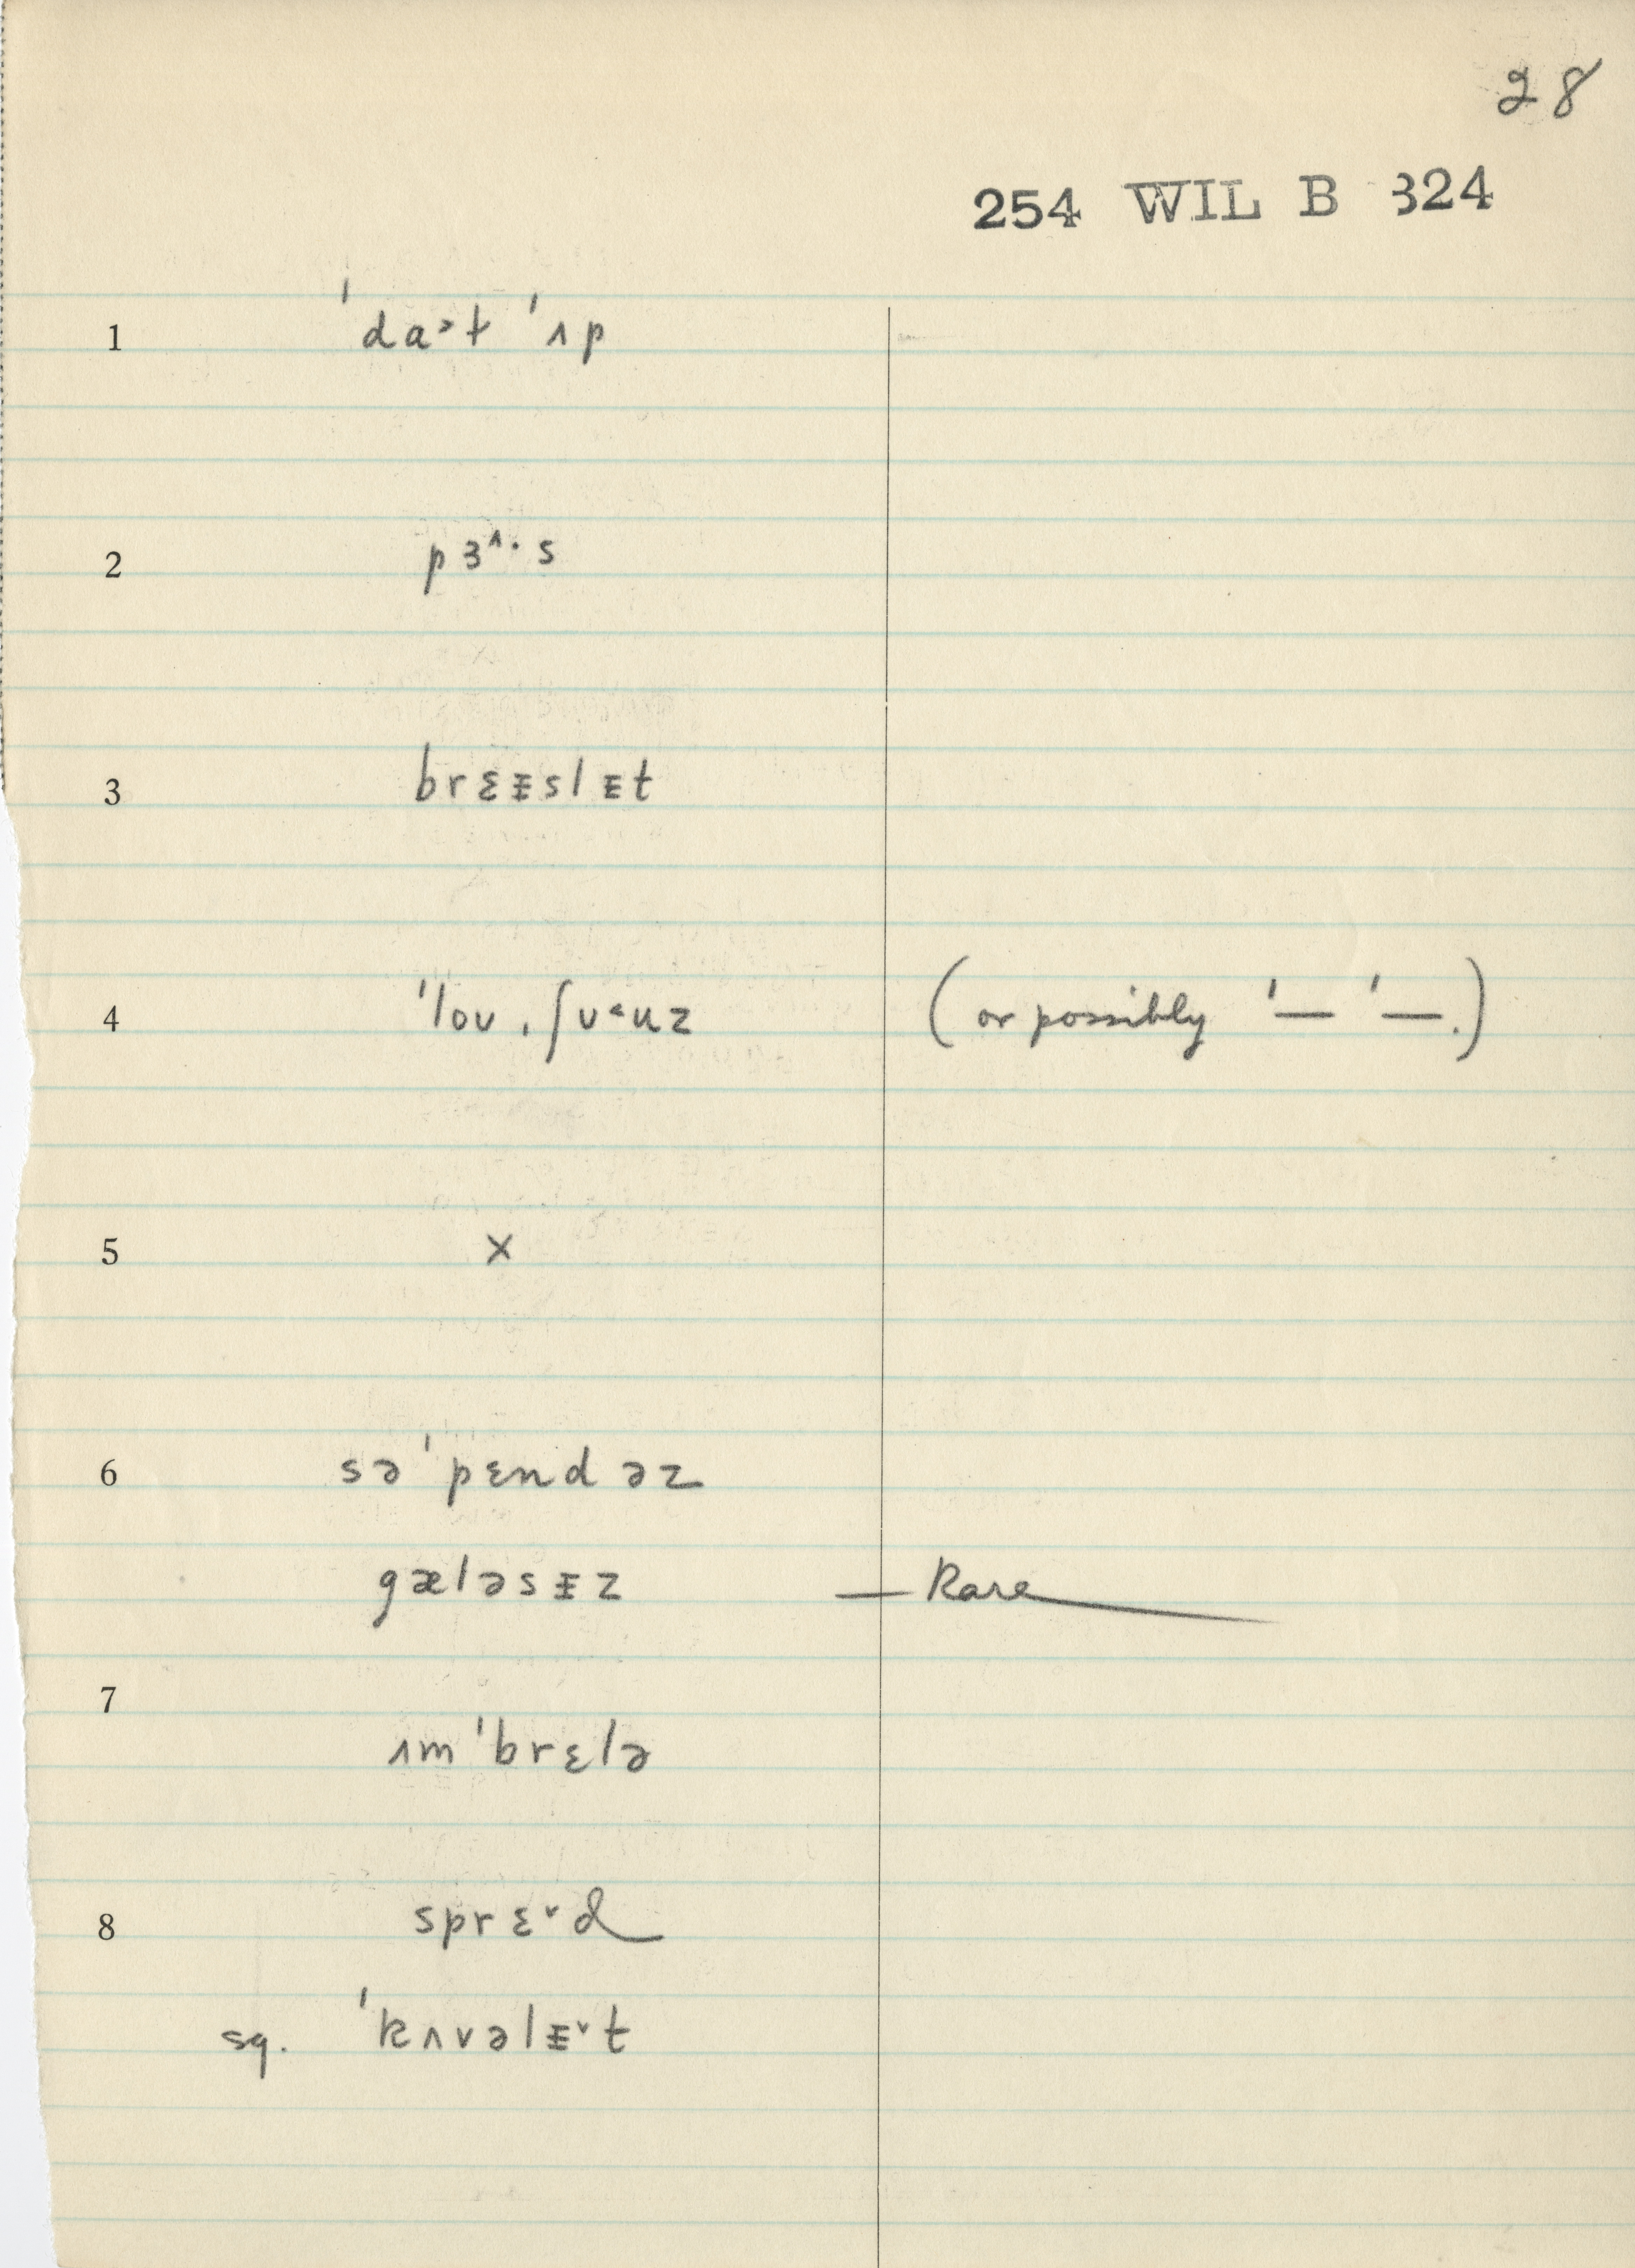 28
254 WIL B 324
1 ˈdaᵊt ˈʌp
2 pɜ^·s
3 brɛᵻslᵻt
4 ˈlou ˌʃʊ˂uz (or possibly ˈ— ˈ—.)
5 x
6 səˈpɛndəz
gæləsᵻz — Rare
7 ʌmˈbrɛlə
8 sprɛ˅d
sq. ˈkʌvəlᵻ˅t